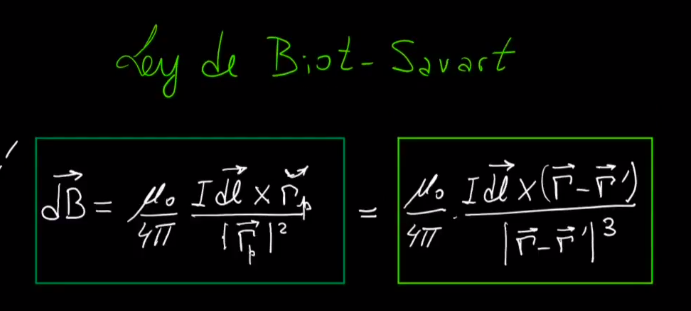 Ley de Biot-Savart
$\vec{dB} = \frac{\mu_0}{4\pi} \frac{I \vec{dl} \times \check{r}_p}{|\vec{r}_p|^2} = \frac{\mu_0}{4\pi} \cdot \frac{I \vec{dl} \times (\vec{r} - \vec{r}')}{|\vec{r} - \vec{r}'|^3}$